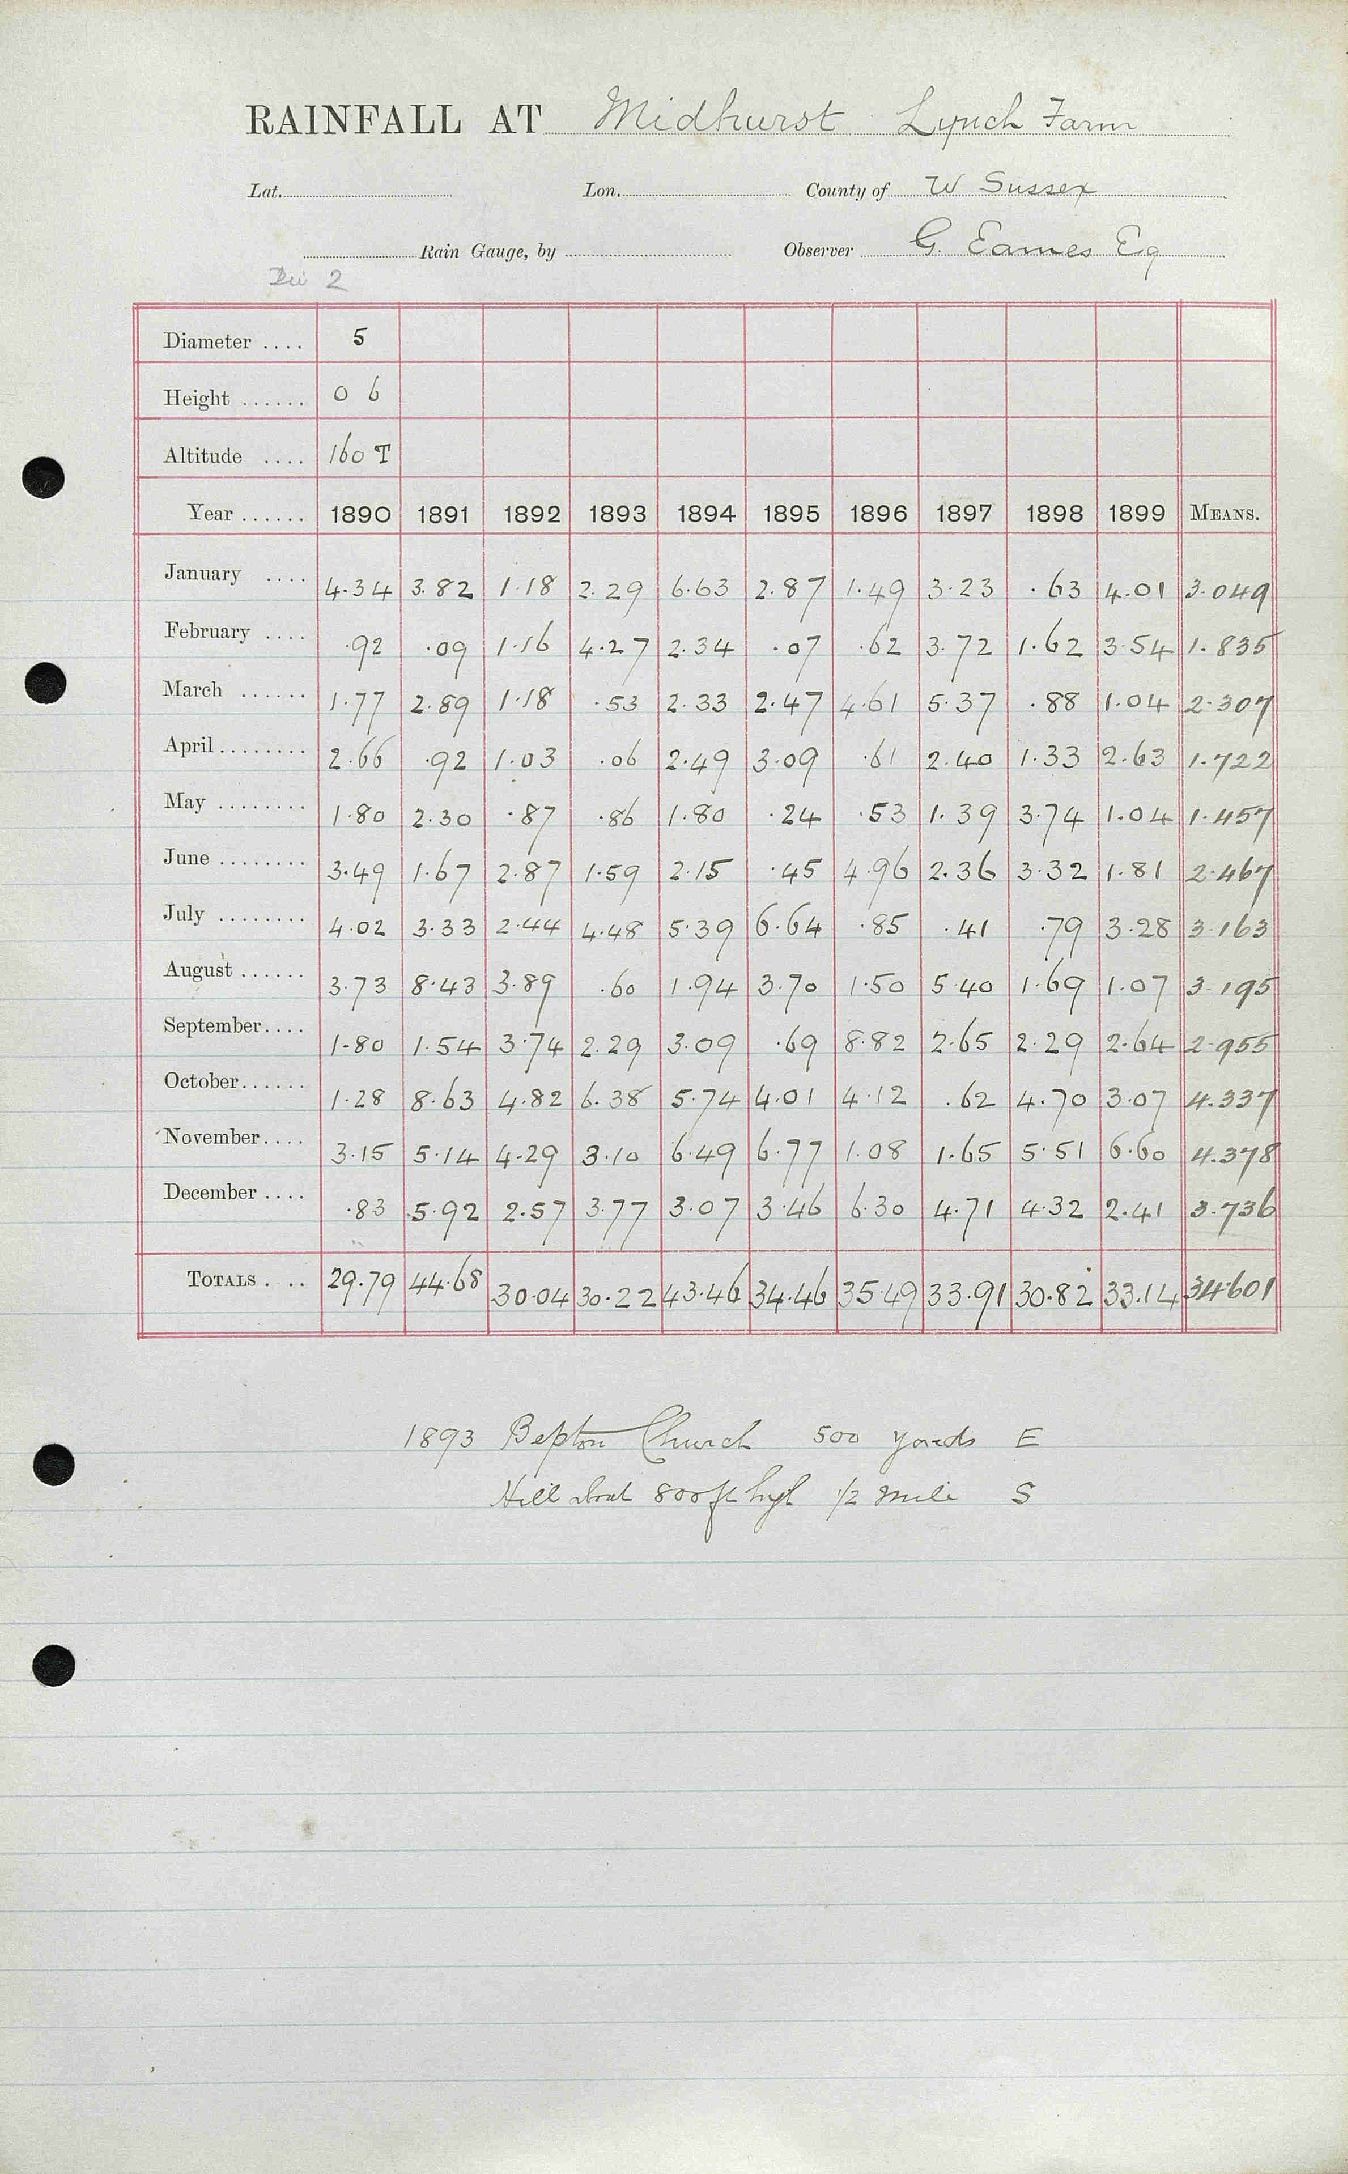 RAINFALL AT Midhurst Lynch Farm
Lat. Lon. County of W Sussex
Rain Gauge, by Observer G. Eames Esq
Div 2
Diameter .... 5
Height ...... 0 6
Altitude .... 160 T
Year ...... 1890 1891 1892 1893 1894 1895 1896 1897 1898 1899 MEANS.
January .... 4.34 3.82 1.18 2.29 6.63 2.87 1.49 3.23 .63 4.01 3.049
February .... .92 .09 1.16 4.27 2.34 .07 .62 3.72 1.62 3.54 1.835
March ...... 1.77 2.89 1.18 .53 2.33 2.47 4.61 5.37 .88 1.04 2.307
April ........ 2.66 .92 1.03 .06 2.49 3.09 .61 2.40 1.33 2.63 1.722
May ........ 1.80 2.30 .87 .86 1.80 .24 .53 1.39 3.74 1.04 1.457
June ........ 3.49 1.67 2.87 1.59 2.15 .45 4.96 2.36 3.32 1.81 2.467
July ........ 4.02 3.33 2.44 4.48 5.39 6.64 .85 .41 .79 3.28 3.163
August ...... 3.73 8.43 3.89 .60 1.94 3.70 1.50 5.40 1.69 1.07 3.195
September.... 1.80 1.54 3.74 2.29 3.09 .69 8.82 2.65 2.29 2.64 2.955
October...... 1.28 8.63 4.82 6.38 5.74 4.01 4.12 .62 4.70 3.07 4.337
November.... 3.15 5.14 4.29 3.10 6.49 6.77 1.08 1.65 5.51 6.60 4.378
December .... .83 5.92 2.57 3.77 3.07 3.46 6.30 4.71 4.32 2.41 3.736
TOTALS . .. 29.79 44.68 30.04 30.22 43.46 34.46 35.49 33.91 30.82 33.14 34.601
1893 Bepton Church 500 yards E
Hill about 800 ft high 1/2 mile S